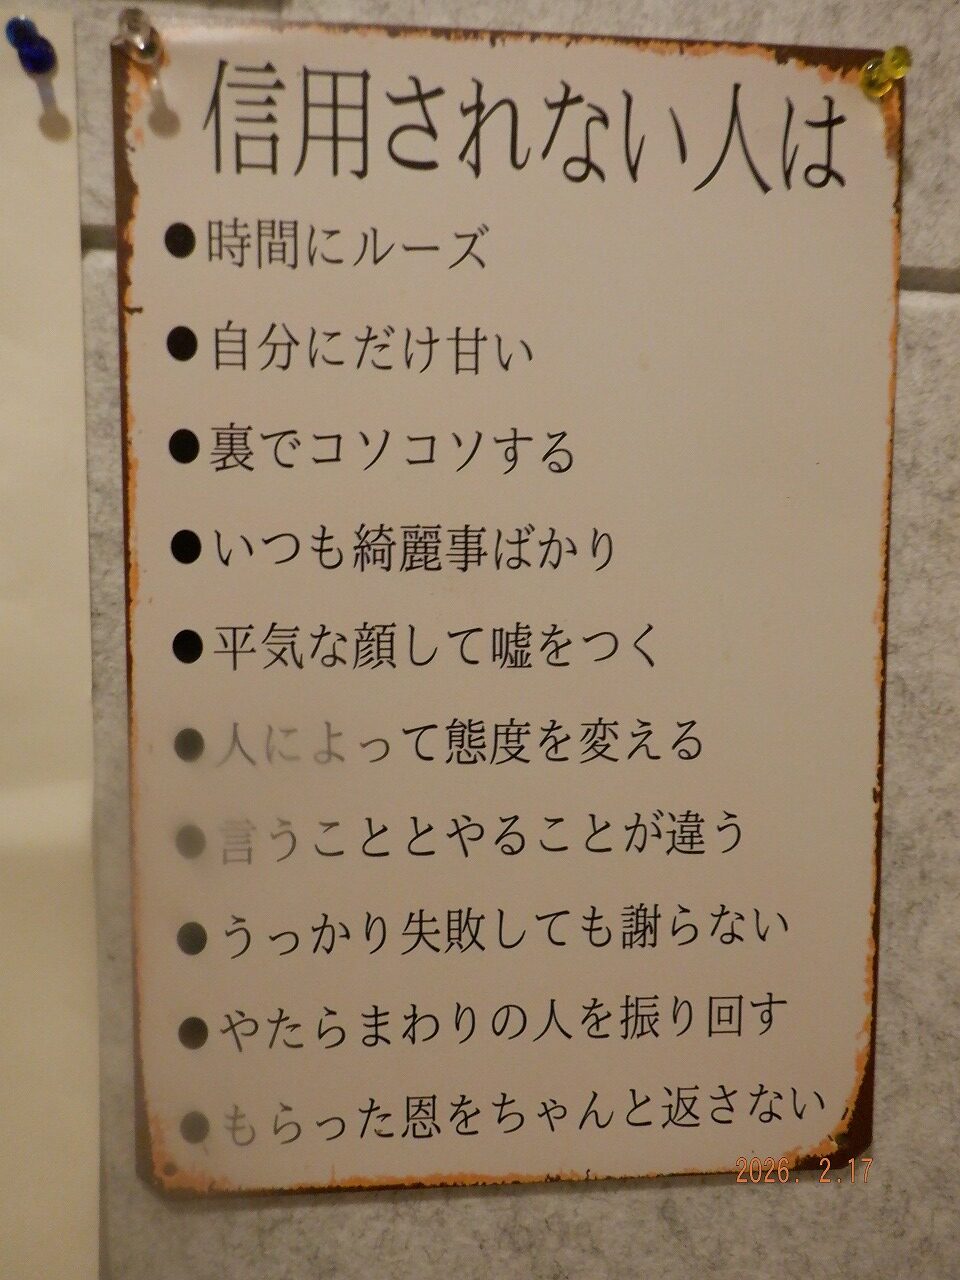 信用されない人は
●時間にルーズ
●自分にだけ甘い
●裏でコソコソする
●いつも綺麗事ばかり
●平気な顔して嘘をつく
●人によって態度を変える
●言うこととやることが違う
●うっかり失敗しても謝らない
●やたらまわりの人を振り回す
●もらった恩をちゃんと返さない
2026. 2.17